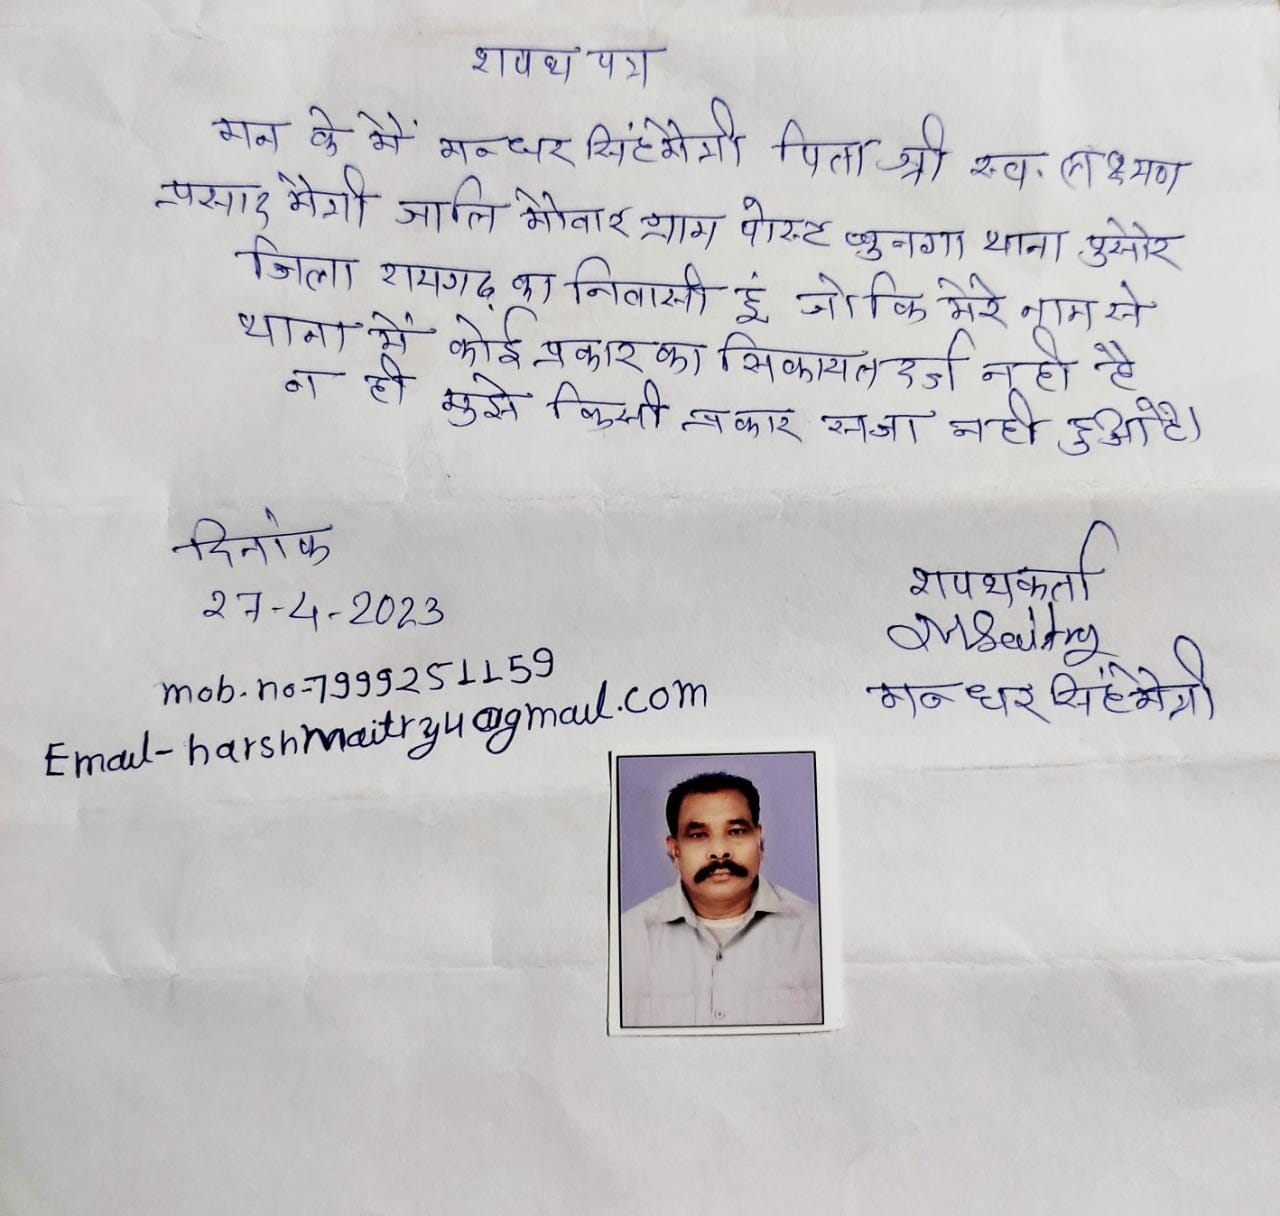 शपथ पत्र
मन के मैं मनधर सिंह मैत्री पिता श्री स्व. लक्ष्मण
प्रसाद मैत्री जाति भोवार ग्राम पोस्ट छुनगा थाना पुसोर
जिला रायगढ़ का निवासी हूं जो कि मेरे नाम से
थाना में कोई प्रकार का सिकायत दर्ज नही है
न ही मुझे किसी प्रकार सजा नही हुआ है।
दिनांक
27-4-2023
शपथकर्ता
mob. no-7999251159
मनधर सिंह मैत्री
Email- harshmaitry4@gmail.com